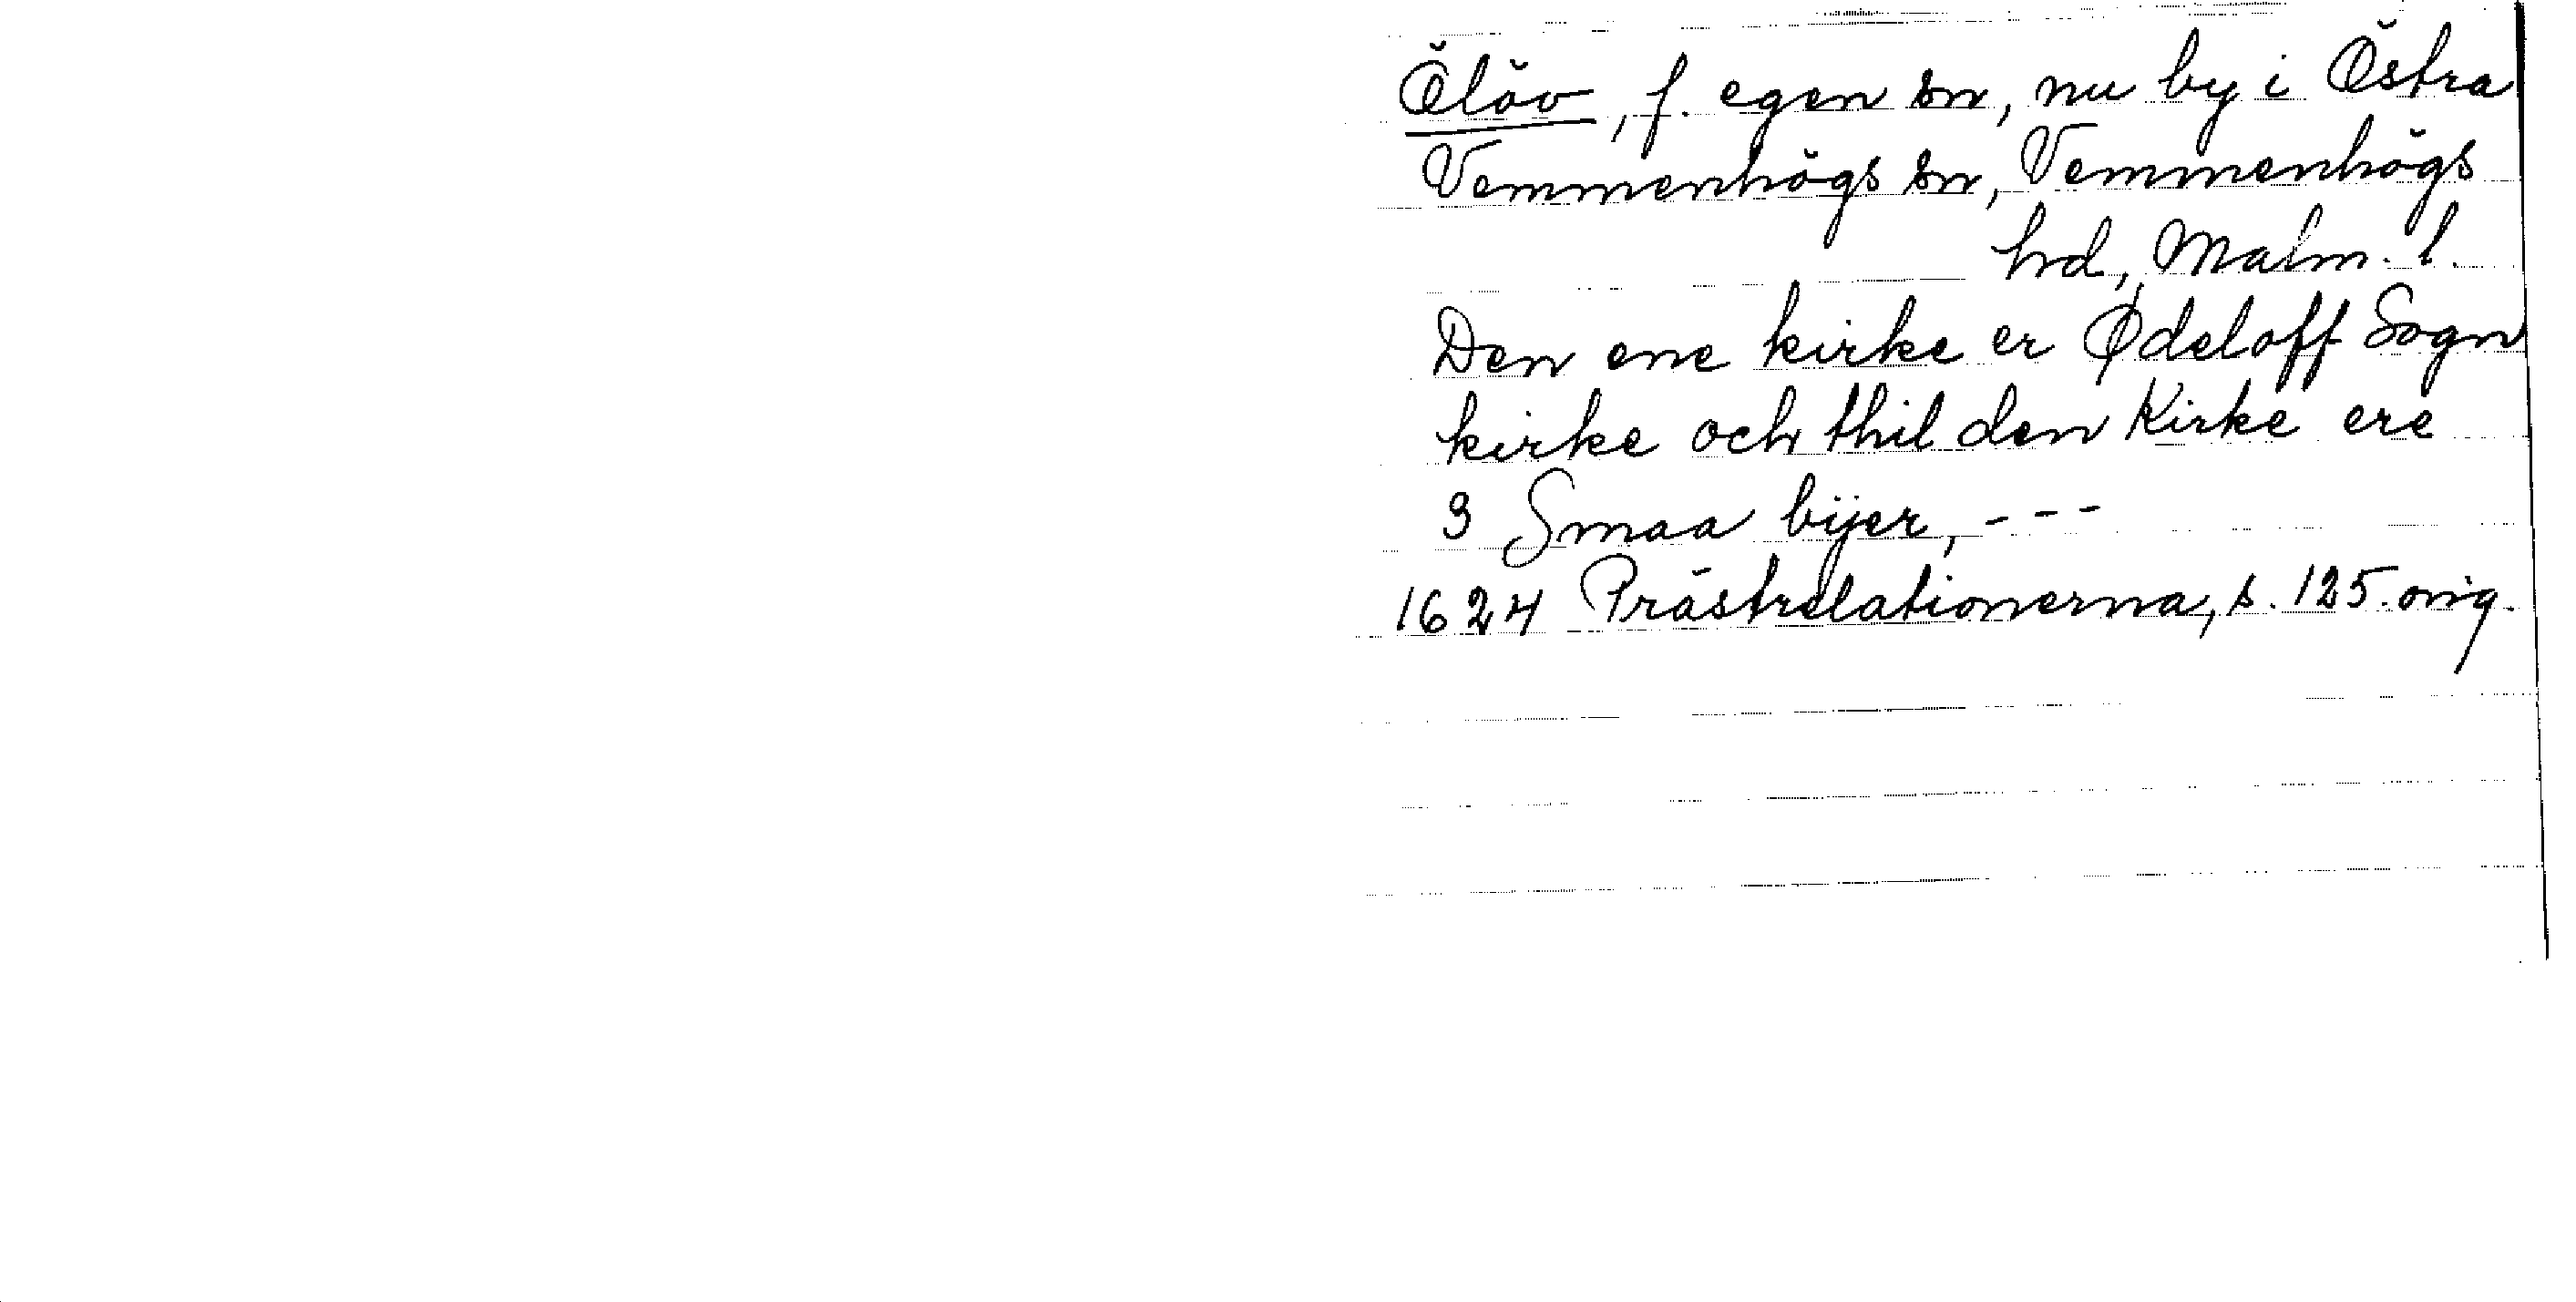 Ölöv, f. egen sn, nu by i Östra
Vemmenhögs sn, Vemmenhögs
hd, Malm. l.
Den ene kirke er Ødeloff Sogn
kirke och thil den Kirke ere
3 Smaa bÿer, - - -
1624 Prästrelationerna, s. 125. orig.